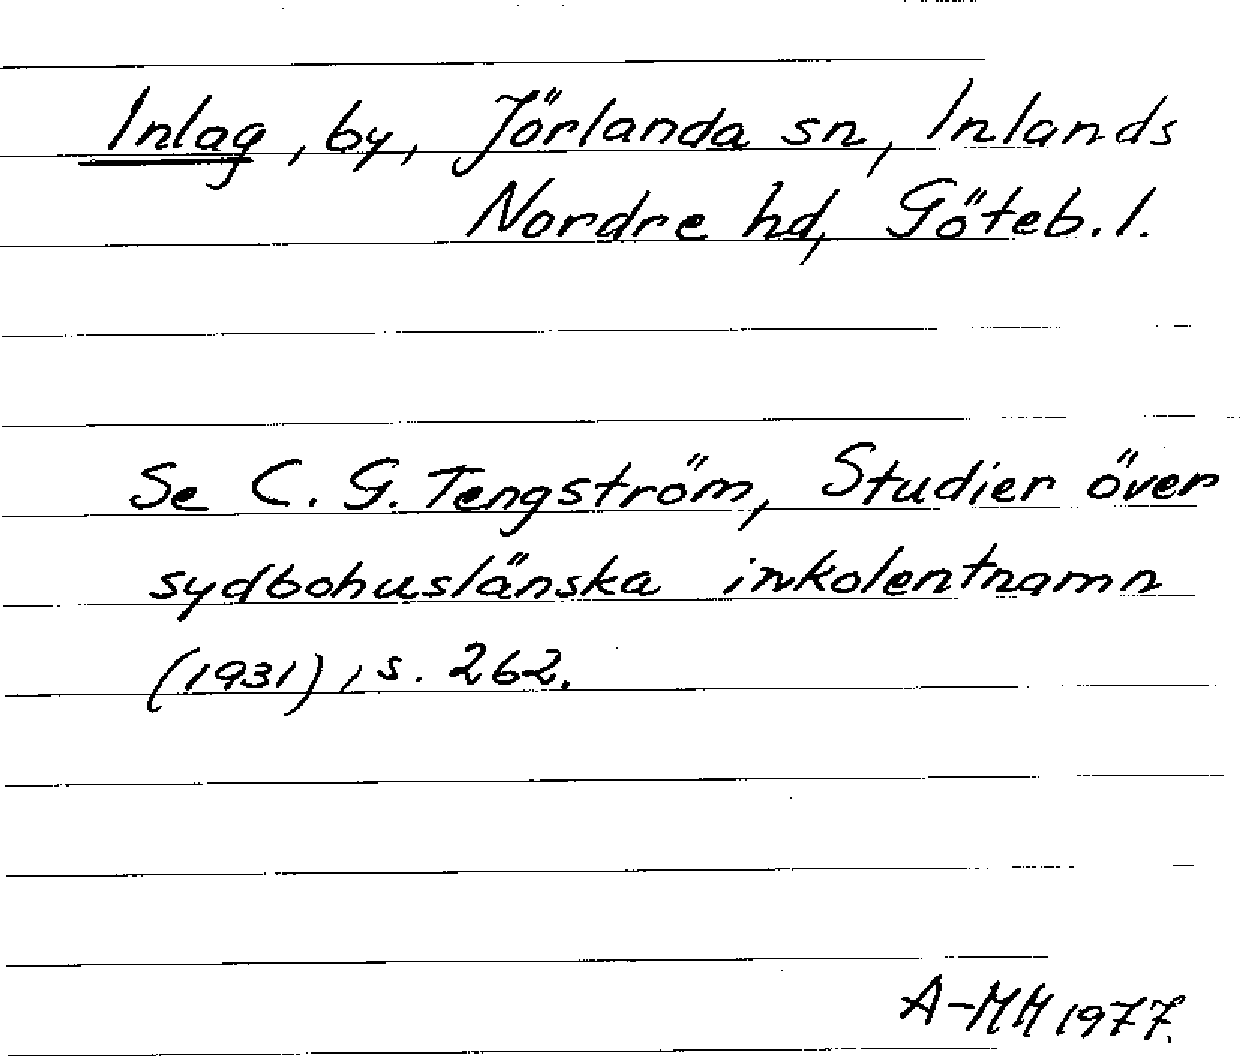 Inlag, by, Jörlanda sn, Inlands
Nordre hd, Göteb. l.
Se C. G. Tengström, Studier över
sydbohuslänska inkolentnamn
(1931), s. 262.
A-MM 1977.